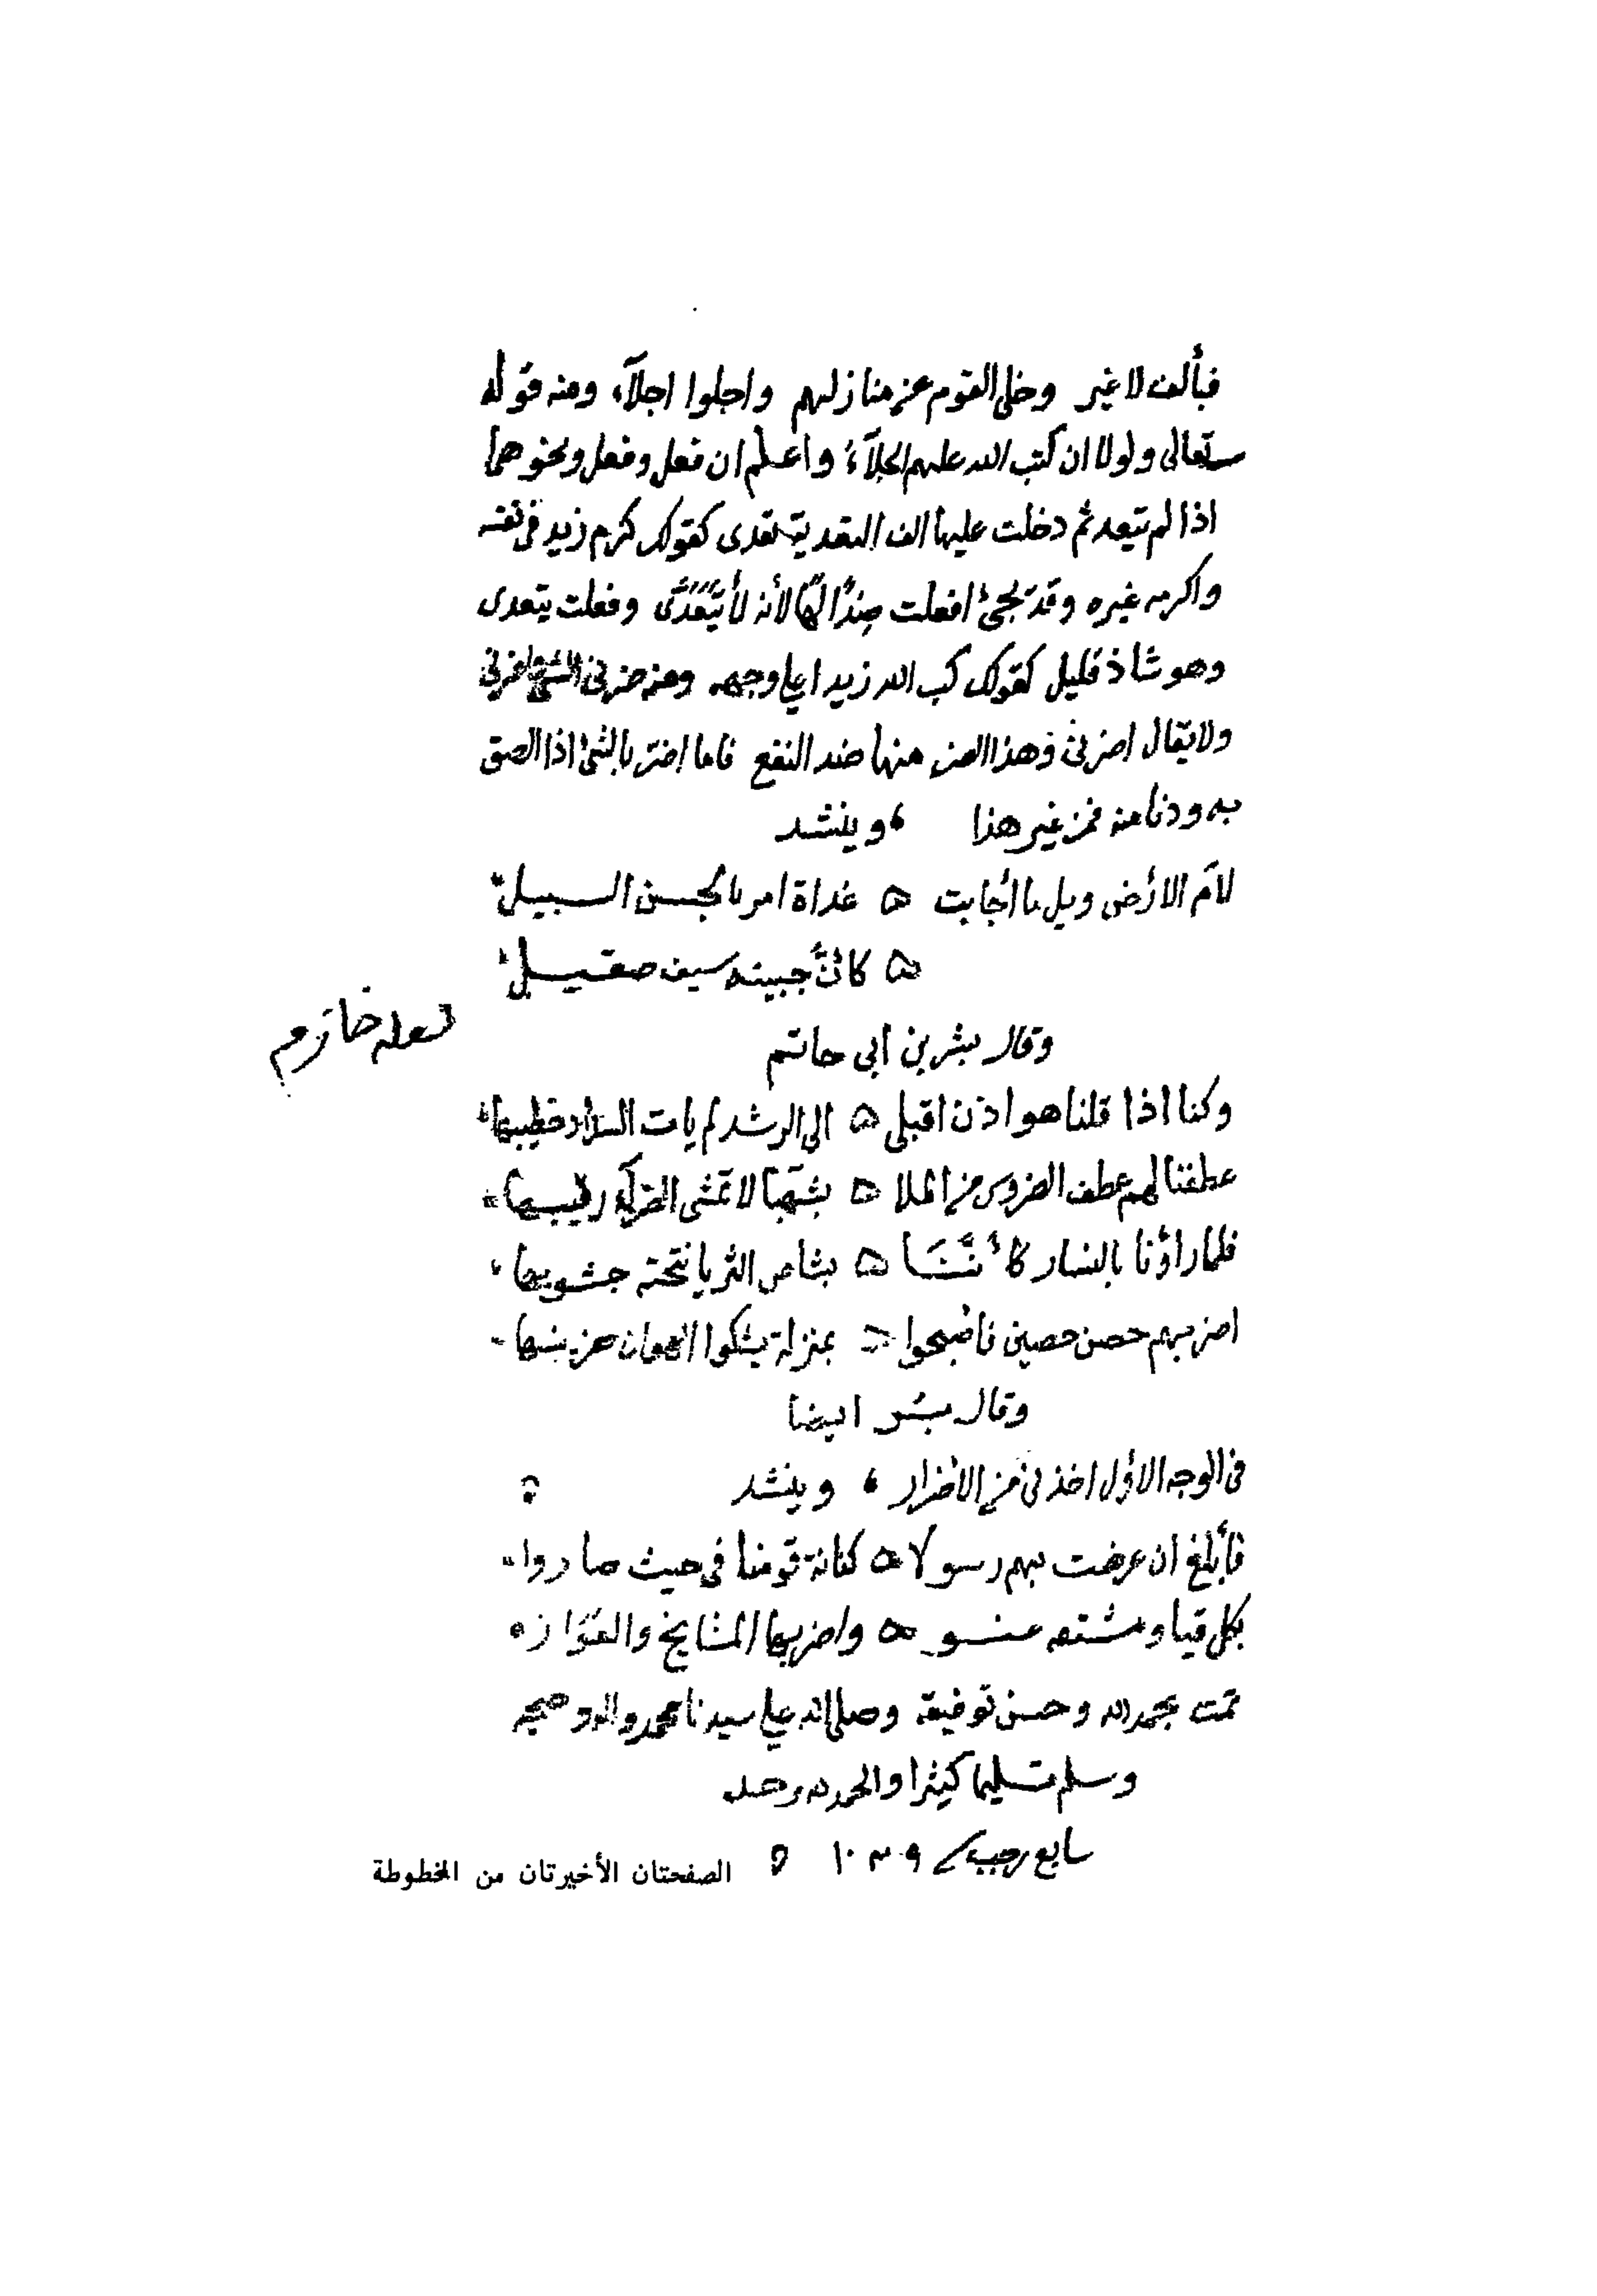 فبألف لا غير وخلى القوم عن منازلهم واجلوا اجلآء ومنه قوله
تعالى ولولا ان كتب الله عليهم الجلآء واعلم ان فعل وفعل ونحوهما
اذا لم يتعد ثم دخلت عليها الف التعدية تعدى كقولك كرم زيد في نفسه
واكرمه غيره وقد يجئ افعلت ضدًا لها لأنه لا يتعدى وفعلت يتعدى
وهو شاذ قليل كقولك كب الله زيدا على وجهه ومنه ضرني الشئ
ولا يقال اضرني وهذا الضر منها ضد النفع فاما اضر بالشئ اذا الصق
به ودنا منه فمن غير هذا ، وينشد
لأم الارض ويل ما أجابت ه غداة امر بالحسن السبيل
ه كانّ جبينه سيف صقيل
لعله خازم
وقال بشر بن ابي حاتم
وكنا اذا قلنا هوازن اقبلى ه الى الرشد لم يات السداد خطيبها
عطفنا لهم عطف الضروس من الملا ه بشهبا لا تمشى الضرآء رقيبها
فلما رأونا بالنسار كأننا ه نشاص الثريا
اضر بهم حصن حصين فاصبحوا ه بمنزلة يشكوا الهوان
وقال بشر ايضا
في الوجه الاول اخذ في من الاضرار ، وينشد
فأبلغ ان عرضت بهم رسولا ه كنانة قومنا في حيث صاروا
بكل قيا و ه واضر بها المشايخ
تمت بحمد الله وحسن توفيقه وصلى الله على سيدنا محمد واله وصحبه
وسلم تسليما كثيرا والحمد لله وحده
سابع رجب ١٠٣٩ ه
الصفحتان الأخيرتان من المخطوطة